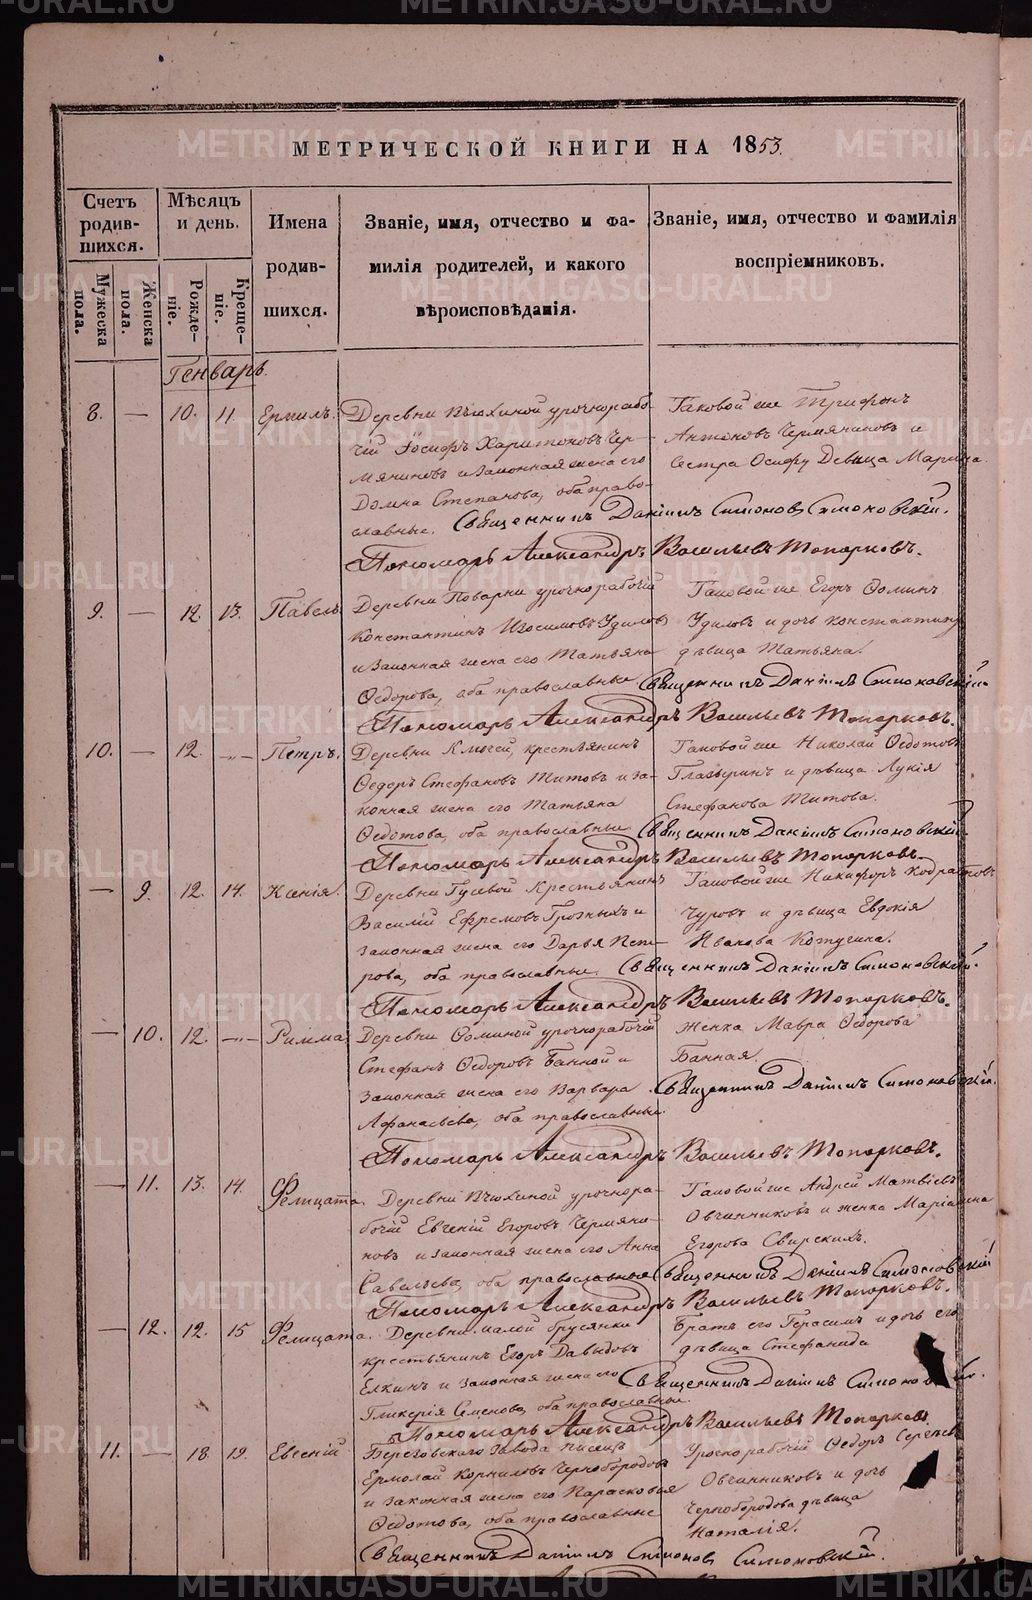 МЕТРИЧЕСКОЙ КНИГИ НА 1853.
Счетъ родив-шихся.
Мѣсяцъ и день.
Имена родив-шихся.
Званіе, имя, отчество и фа-
милія родителей, и какого
вѣроисповѣданія.
Званіе, имя, отчество и фамилія
воспріемниковъ.
Мужеска пола.
Женска пола.
Рожде-ніе.
Креще-ніе.
Генварь.
8. — 10. 11. Ермилъ. Деревни Вьюхиной урочнорабо- Таковой же Трифонъ
чій Іосифъ Харитоновъ Чер- Антоновъ Чермяниновъ и
мяниновъ и законная жена его Сестра Осифу Девица Марина.
Домна Степанова, оба право-
славные. Священникъ Даніилъ Симоновъ Симоновскій.
Пономарь Александръ Васильевъ Топорковъ.
9. — 12. 13. Павелъ. Деревни Поварни урочнорабочій Таковой же Егоръ Ѳоминъ
Константинъ Изосимовъ Удиловъ Удиловъ и дочь Константину
и законная жена его Татьяна дѣвица Татьяна.
Ѳедорова, оба православные Священникъ Даніилъ Симоновскій.
Пономарь Александръ Васильевъ Топорковъ.
10. — 12. -„- Петръ. Деревни Ключей, крестьянинъ Таковой же Николай Ѳедотовъ
Ѳедоръ Стефановъ Титовъ и за- Глазыринъ и дѣвица Лукія
конная жена его Татьяна Стефанова Титова.
Ѳедотова, оба православные Священникъ Даніилъ Симоновскій.
Пономарь Александръ Васильевъ Топорковъ.
— 9. 12. 14. Ксенія. Деревни Гусевой Крестьянинъ Таковой же Никифоръ Кодратовъ
Василій Ефремовъ Грозныхъ и Чуровъ и дѣвица Евдокія
законная жена его Дарья Пет- Иванова Котугина.
рова, оба православные. Священникъ Даніилъ Симоновскій.
Пономарь Александръ Васильевъ Топорковъ.
— 10. 12. -„- Римма. Деревни Ѳоминой урочнорабочій Женка Мавра Ѳедорова
Стефанъ Ѳедоровъ Банной и Банная.
законная жена его Варвара Священникъ Даніилъ Симоновскій.
Афанасьева, оба православные.
Пономарь Александръ Васильевъ Топорковъ.
— 11. 13. 14. Фелицата. Деревни Вьюхиной урочнора- Таковой же Андрей Матвѣевъ
бочій Евгеній Егоровъ Чермяни- Овчинниковъ и женка Маріамна
новъ и законная жена его Анна Егорова Свирскихъ.
Савельева, оба православные Священникъ Даніилъ Симоновскій
Пономарь Александръ Васильевъ Топорковъ.
— 12. 12. 15 Фелицата. Деревни малой брусянки Братъ его Герасимъ и дочь его
крестьянинъ Егоръ Давыдовъ дѣвица Стефанида
Елкинъ и законная жена его Священникъ Даніилъ
Гликерія Семенова, оба православные.
Пономарь Александръ Васильевъ Топорковъ.
11. — 18. 19. Евгеній Березовскаго завода писецъ Урочнорабочій Ѳедоръ Сергѣевъ
Ермолай Корниловъ Чернобородовъ Овчинниковъ и дочь
и законная жена его Парасковья Чернобородова дѣвица
Ѳедотова, оба православные Наталія.
Священникъ Даніилъ Симоновъ Симоновскій.
METRIKI.GASO-URAL.RU